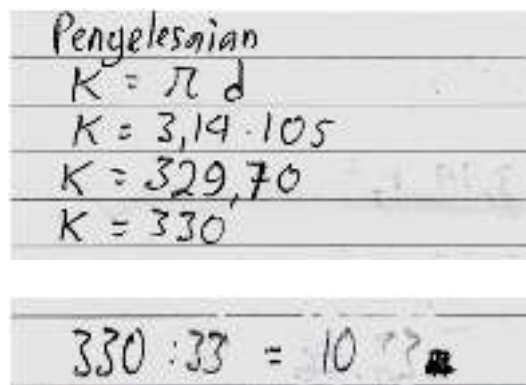 Penyelesaian
K = π d
K = 3,14 . 105
K = 329,70
K = 330
330 : 33 = 10